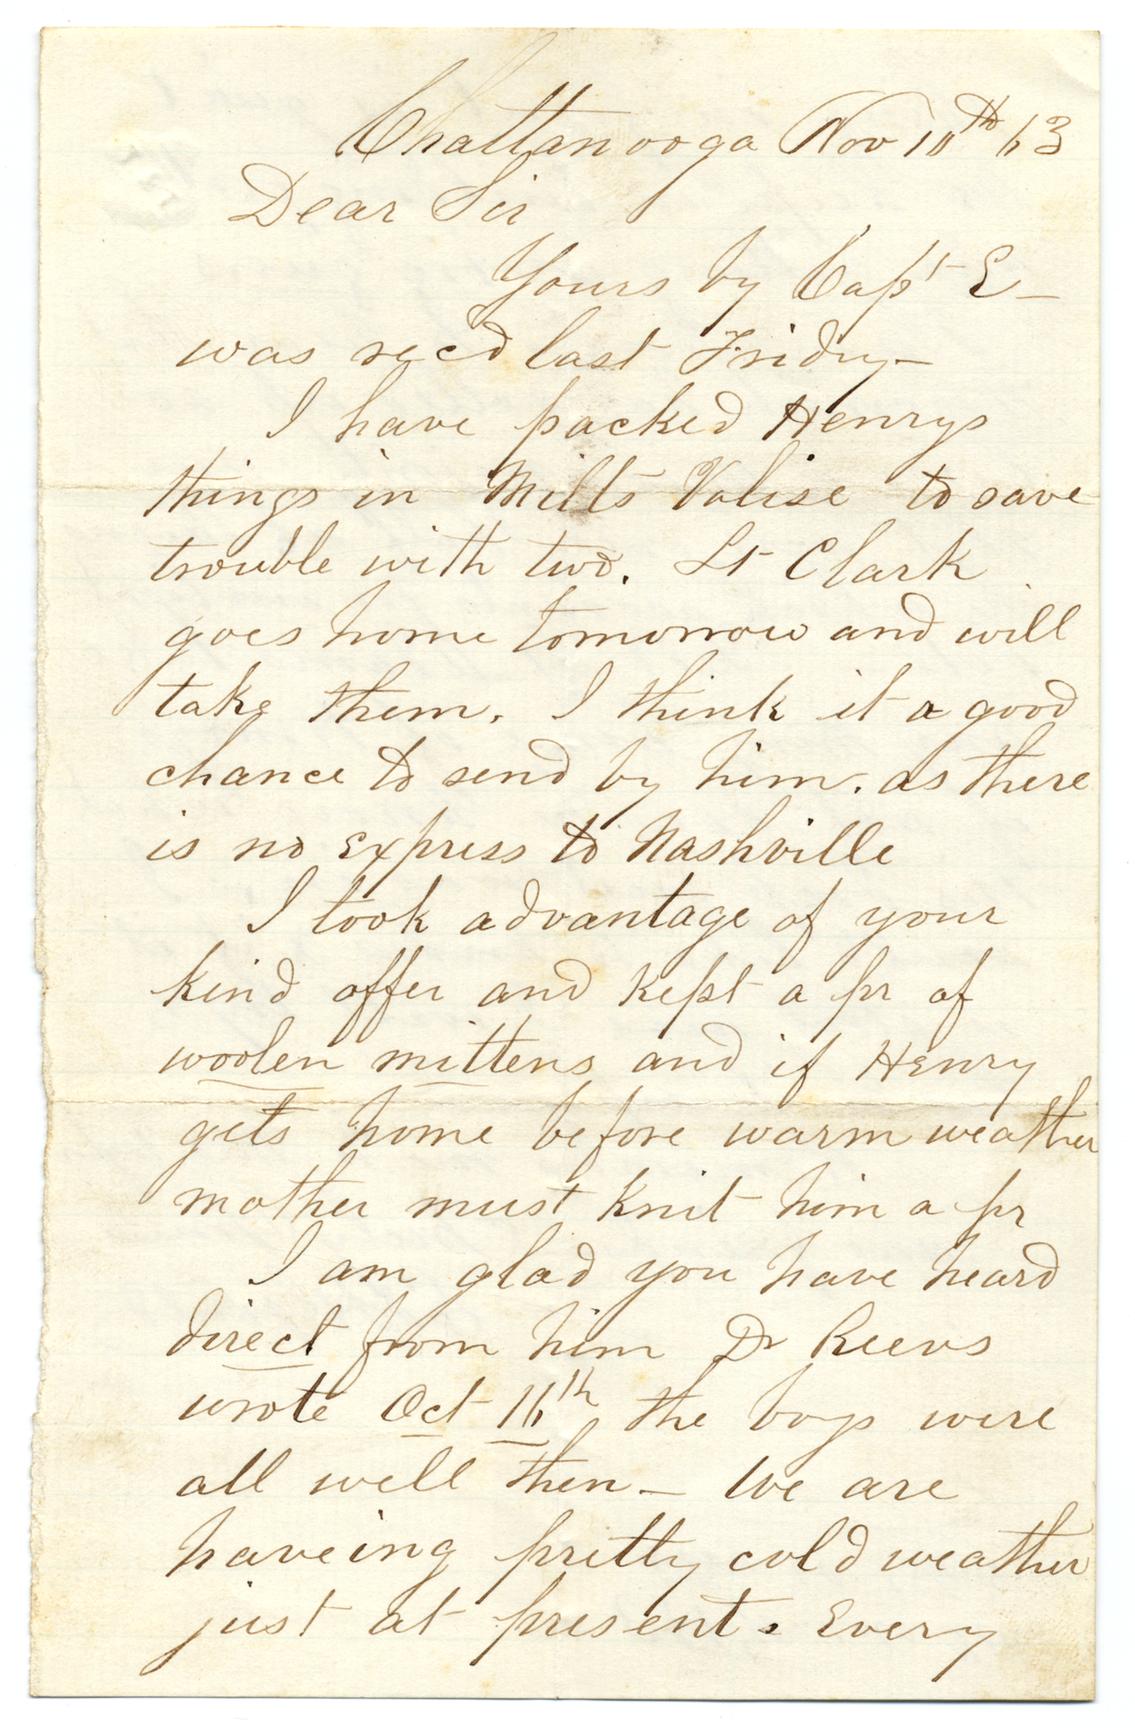 Chattanooga Nov 10th 63
Dear Sir
Yours by Capt E—
was recd last Fridy—
I have packed Henrys
things in Milts Valise to save
trouble with two. Lt Clark
goes home tomorrow and will
take them. I think it a good
chance to send by him. as there
is no express to Nashville
I took advantage of your
kind offer and kept a pr of
woolen mittens and if Henry
gets home before warm weather
mother must knit him a pr
I am glad you have heard
direct from him Dr Reevs
wrote Oct 16th the boys were
all well then — We are
haveing pretty cold weather
just at present. Every